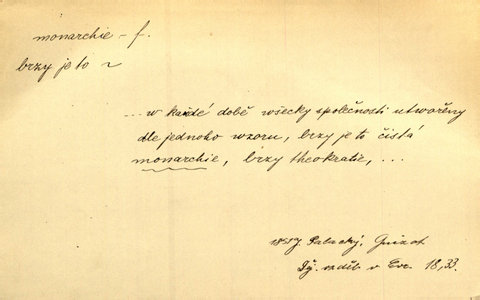 monarchie – f.
brzy je to ~
... w každé době wšecky společnosti utwořeny
dle jednoho wzoru, brzy je to čistá
monarchie, brzy theokratie, ...
1851 J. Palacký, Guizot
Děj. vzděl. v Evr. 18,33.